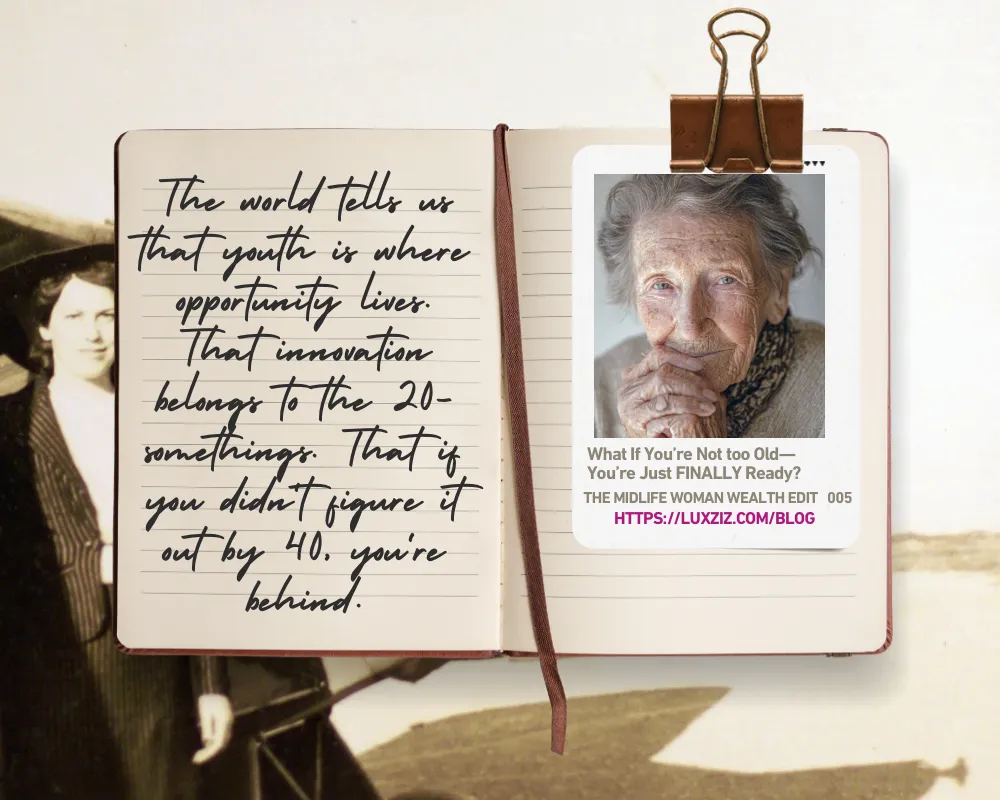 The world tells us
that youth is where
opportunity lives.
That innovation
belongs to the 20-
somethings. That if
you didn't figure it
out by 40, you're
behind.
What If You're Not too Old—
You're Just FINALLY Ready?
THE MIDLIFE WOMAN WEALTH EDIT 005
HTTPS://LUXZIZ.COM/BLOG